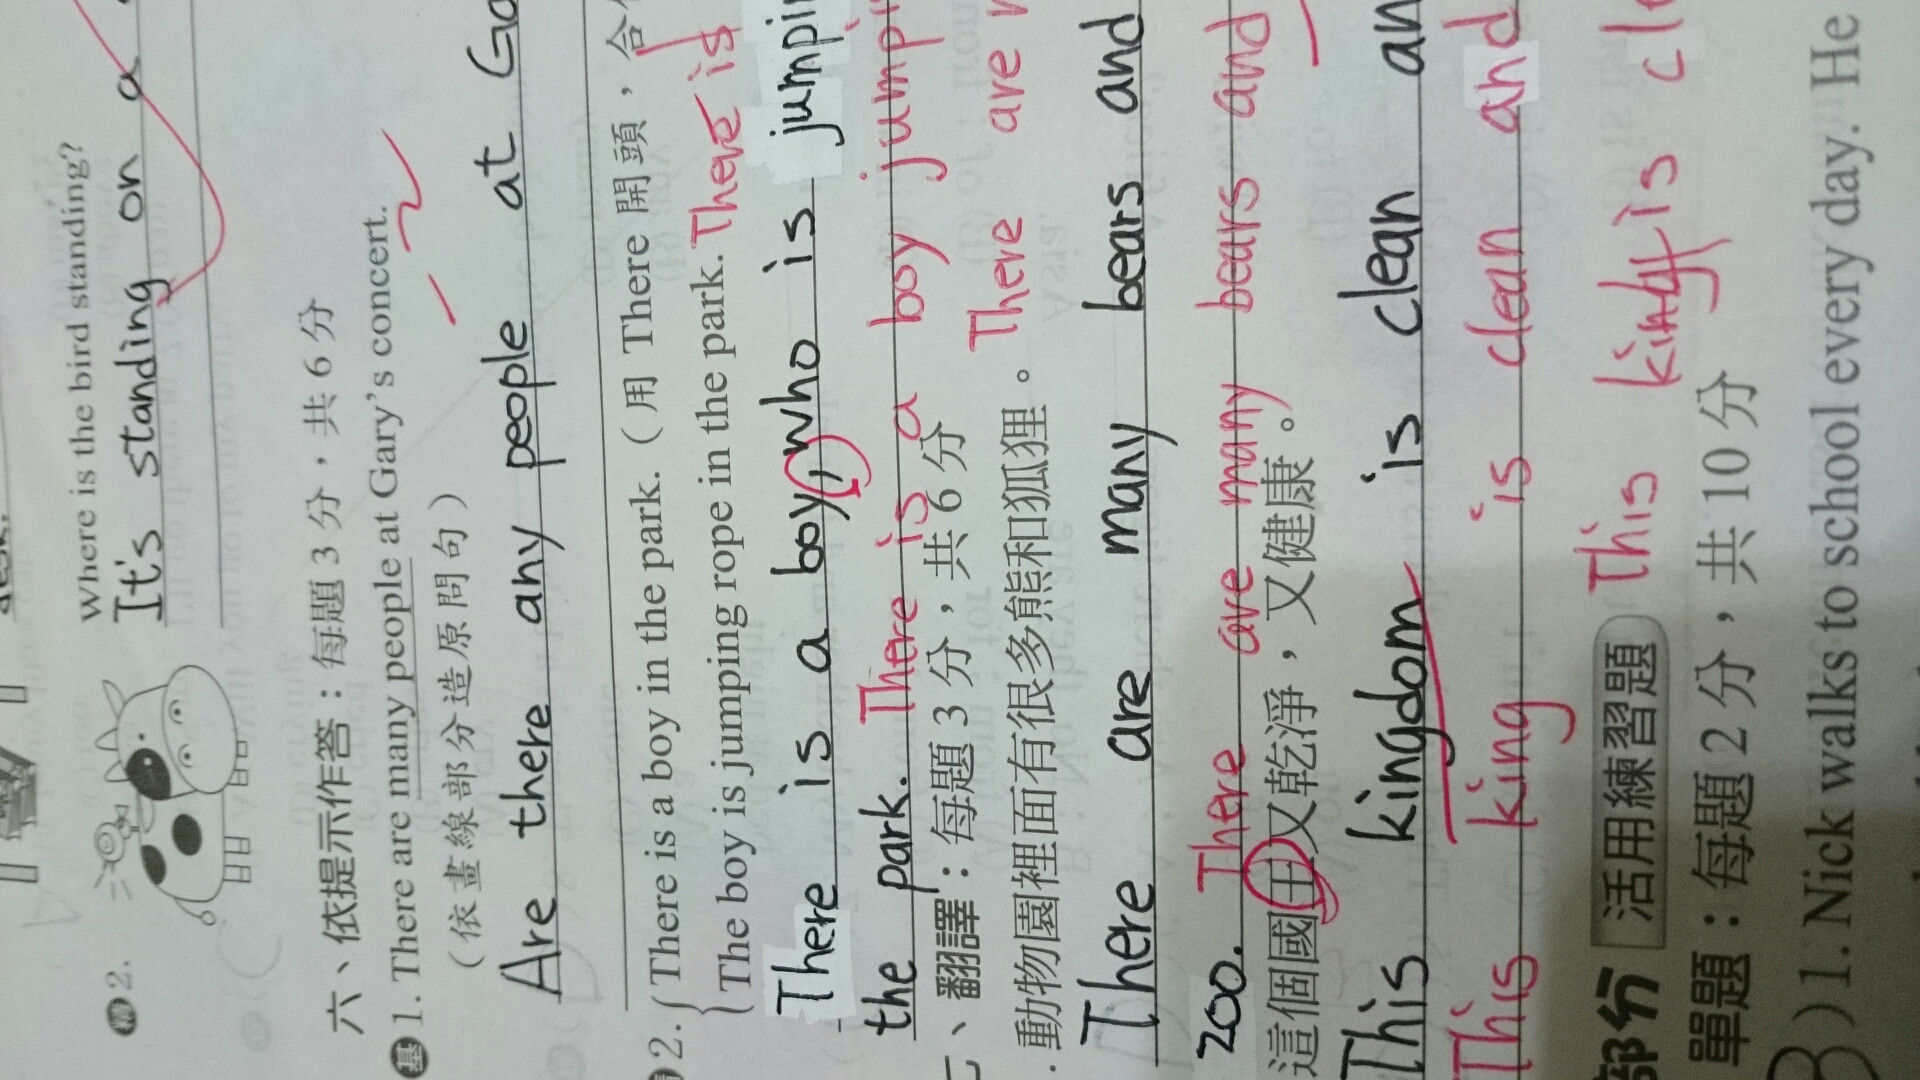 Where is the bird standing?
It's standing on a
2.
六、依提示作答：每題 3 分，共 6 分
基 1. There are many people at Gary's concert.
（依畫線部分造原問句）
Are there any people at
2. There is a boy in the park.（用 There 開頭，合
The boy is jumping rope in the park. There is
There is a boy, who is
the park. There is a boy
、翻譯：每題 3 分，共 6 分
. 動物園裡面有很多熊和狐狸。There are
There are many bears and
zoo. There are many bears and
這個國王又乾淨，又健康。
This kingdom is clean
This king is clean and
This king is
部分 活用練習題
單題：每題 2 分，共 10 分
) 1. Nick walks to school every day. He